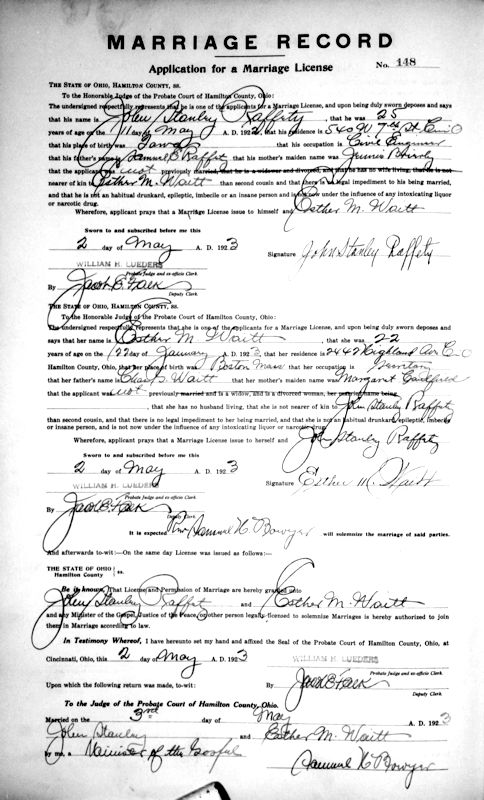 MARRIAGE RECORD
No. 148
Application for a Marriage License
THE STATE OF OHIO, HAMILTON COUNTY, ss.
To the Honorable Judge of the Probate Court of Hamilton County, Ohio:
The undersigned respectfully represents that he is one of the applicants for a Marriage License, and upon being duly sworn deposes and says
that his name is John Stanley Raffety, that he was 25
years of age on the 11 day of May A. D. 192, that his residence is 540 W. 7th St Cin O
that his place of birth was that his occupation is Civil Engineer
that his father's name is Samuel B Raffety that his mother's maiden name was
that the applicant was not previously married, that he is a widower and divorced, and that he has no wife living, that he is not
nearer of kin to Esther M. Waitt than second cousin and that there is no legal impediment to his being married,
and that he is not an habitual drunkard, epileptic, imbecile or an insane person and is not now under the influence of any intoxicating liquor
or narcotic drug.
Wherefore, applicant prays that a Marriage License issue to himself and Esther M. Waitt
Sworn to and subscribed before me this
2 day of May A. D. 1923
Signature John Stanley Raffety
WILLIAM H. LUEDERS
Probate Judge and ex-officio Clerk.
By Jacob E. Falk
Deputy Clerk.
THE STATE OF OHIO, HAMILTON COUNTY, ss.
To the Honorable Judge of the Probate Court of Hamilton County, Ohio:
The undersigned respectfully represents that she is one of the applicants for a Marriage License, and upon being duly sworn deposes and
says that her name is Esther M. Waitt, that she was 22
years of age on the 22 day of January A. D. 1923, that her residence is 2442 Highland Av C-O
Hamilton County, Ohio, that her place of birth was Boston Mass that her occupation is
that her father's name is Chas S Waitt that her mother's maiden name was Margaret
that the applicant was not previously married and is a widow, and is a divorced woman, her married name being
, that she has no husband living, that she is not nearer of kin to John Stanley Raffety
than second cousin, and that there is no legal impediment to her being married, and that she is not an habitual drunkard, epileptic, imbecile
or insane person, and is not now under the influence of any intoxicating liquor or narcotic drug.
Wherefore, applicant prays that a Marriage License issue to herself and John Stanley Raffety
Sworn to and subscribed before me this
2 day of May A. D. 1923
WILLIAM H. LUEDERS
Signature Esther M. Waitt
Probate Judge and ex-officio Clerk.
By Jacob E. Falk
Deputy Clerk.
It is expected Rev Samuel H. Bowyer will solemnize the marriage of said parties.
And afterwards to-wit:—On the same day License was issued as follows:—
THE STATE OF OHIO
Hamilton County } ss.
Be it known, That License and Permission of Marriage are hereby granted unto
John Stanley Raffety and Esther M. Waitt
and any Minister of the Gospel, Justice of the Peace, or other person legally licensed to solemnize Marriages is hereby authorized to join
them in Marriage according to law.
In Testimony Whereof, I have hereunto set my hand and affixed the Seal of the Probate Court of Hamilton County, Ohio, at
Cincinnati, Ohio, this 2 day of May A. D. 1923
WILLIAM H. LUEDERS
Probate Judge and ex-officio Clerk.
Upon which the following return was made, to-wit:
By Jacob E. Falk
Deputy Clerk.
To the Judge of the Probate Court of Hamilton County, Ohio.
Married on the 3rd day of May A. D. 1923
John Stanley and Esther M. Waitt
by me, a Minister of the Gospel Samuel H. Bowyer